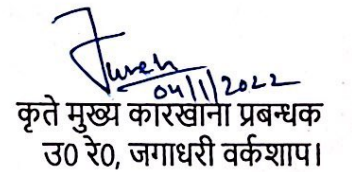 04/11/2022
कृते मुख्य कारखाना प्रबन्धक
उ0 रे0, जगाधरी वर्कशाप।